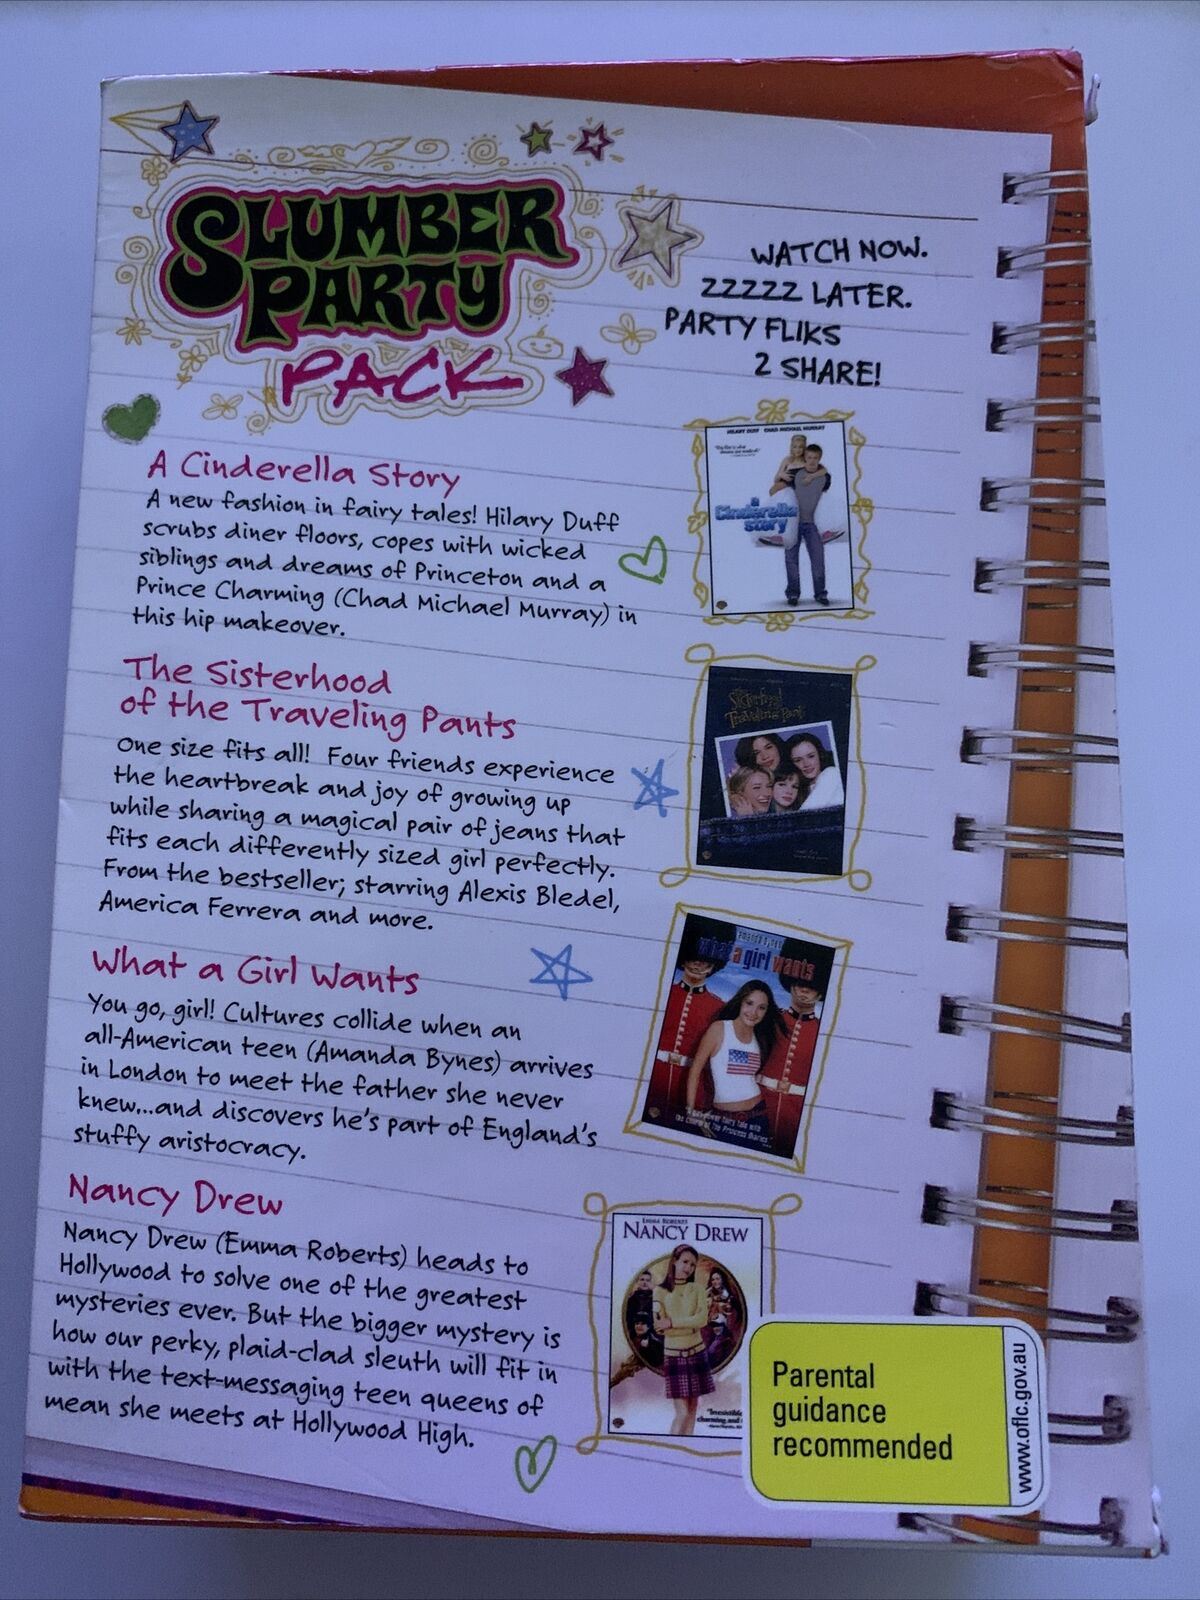 SLUMBER
PARTY
PACK
WATCH NOW.
ZZZZZ LATER.
PARTY FLIKS
2 SHARE!
A Cinderella Story
A new fashion in fairy tales! Hilary Duff
scrubs diner floors, copes with wicked
siblings and dreams of Princeton and a
Prince Charming (Chad Michael Murray) in
this hip makeover.
HILARY DUFF CHAD MICHAEL MURRAY
a
Cinderella
story
The Sisterhood
of the Traveling Pants
One size fits all! Four friends experience
the heartbreak and joy of growing up
while sharing a magical pair of jeans that
fits each differently sized girl perfectly.
From the bestseller; starring Alexis Bledel,
America Ferrera and more.
Traveling Pants
What a Girl Wants
You go, girl! Cultures collide when an
all-American teen (Amanda Bynes) arrives
in London to meet the father she never
knew...and discovers he's part of England's
stuffy aristocracy.
AMANDA BYNES
what a girl wants
Nancy Drew
Nancy Drew (Emma Roberts) heads to
Hollywood to solve one of the greatest
mysteries ever. But the bigger mystery is
how our perky, plaid-clad sleuth will fit in
with the text-messaging teen queens of
mean she meets at Hollywood High.
EMMA ROBERTS
NANCY DREW
Parental
guidance
recommended
www.oflc.gov.au